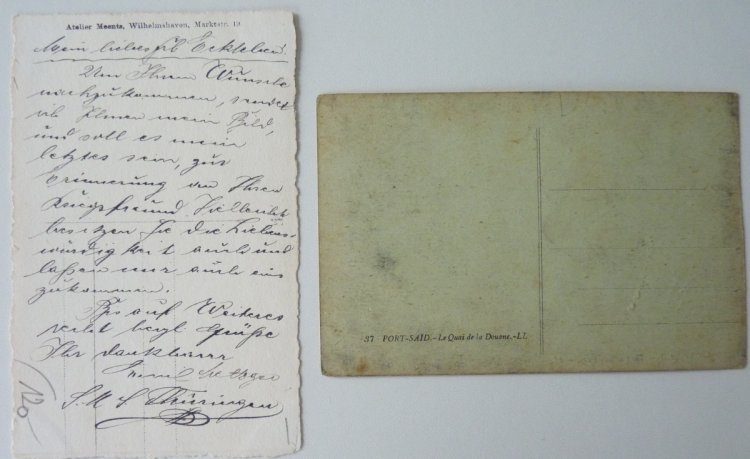 Atelier Meents, Wilhelmshaven, Marktstr. 19
Mein liebes Eckleben!
Um Ihrem Wunsche
nachzukommen, sendet
ich Ihnen mein Bild,
und soll es mein
letztes sein, zur
Erinnerung an Ihren
Kriegsfreund Vielleicht
besitzen Sie die Liebens-
würdigkeit auch und
laßen mir auch eins
zukommen.
Bis auf Weiteres
Grüße
Ihr dankbarer
S.M.S Thüringen
120-
37 PORT-SAÏD.-Le Quai de la Douane.-LL